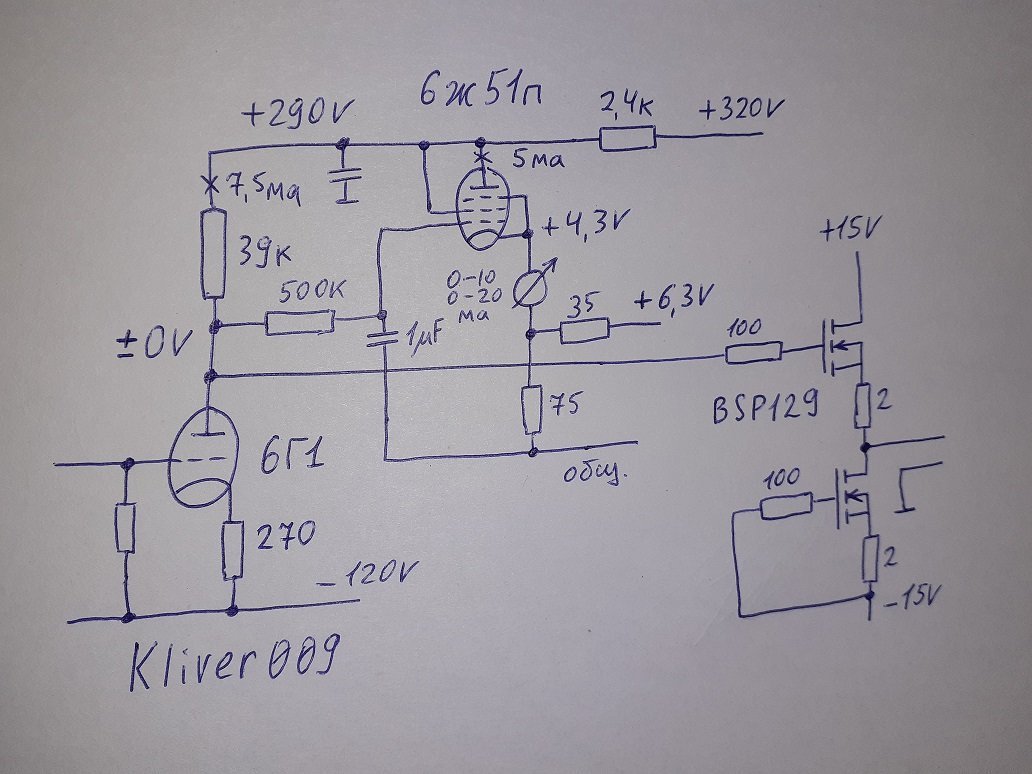 6ж51п
+290V
2,4к
+320V
5ма
7,5ма
+4,3V
+15V
39к
500К
0-10
0-20
ма
35
+6,3V
±0V
1µF
100
BSP129
2
75
6Г1
общ.
100
270
2
-120V
-15V
Kliver009